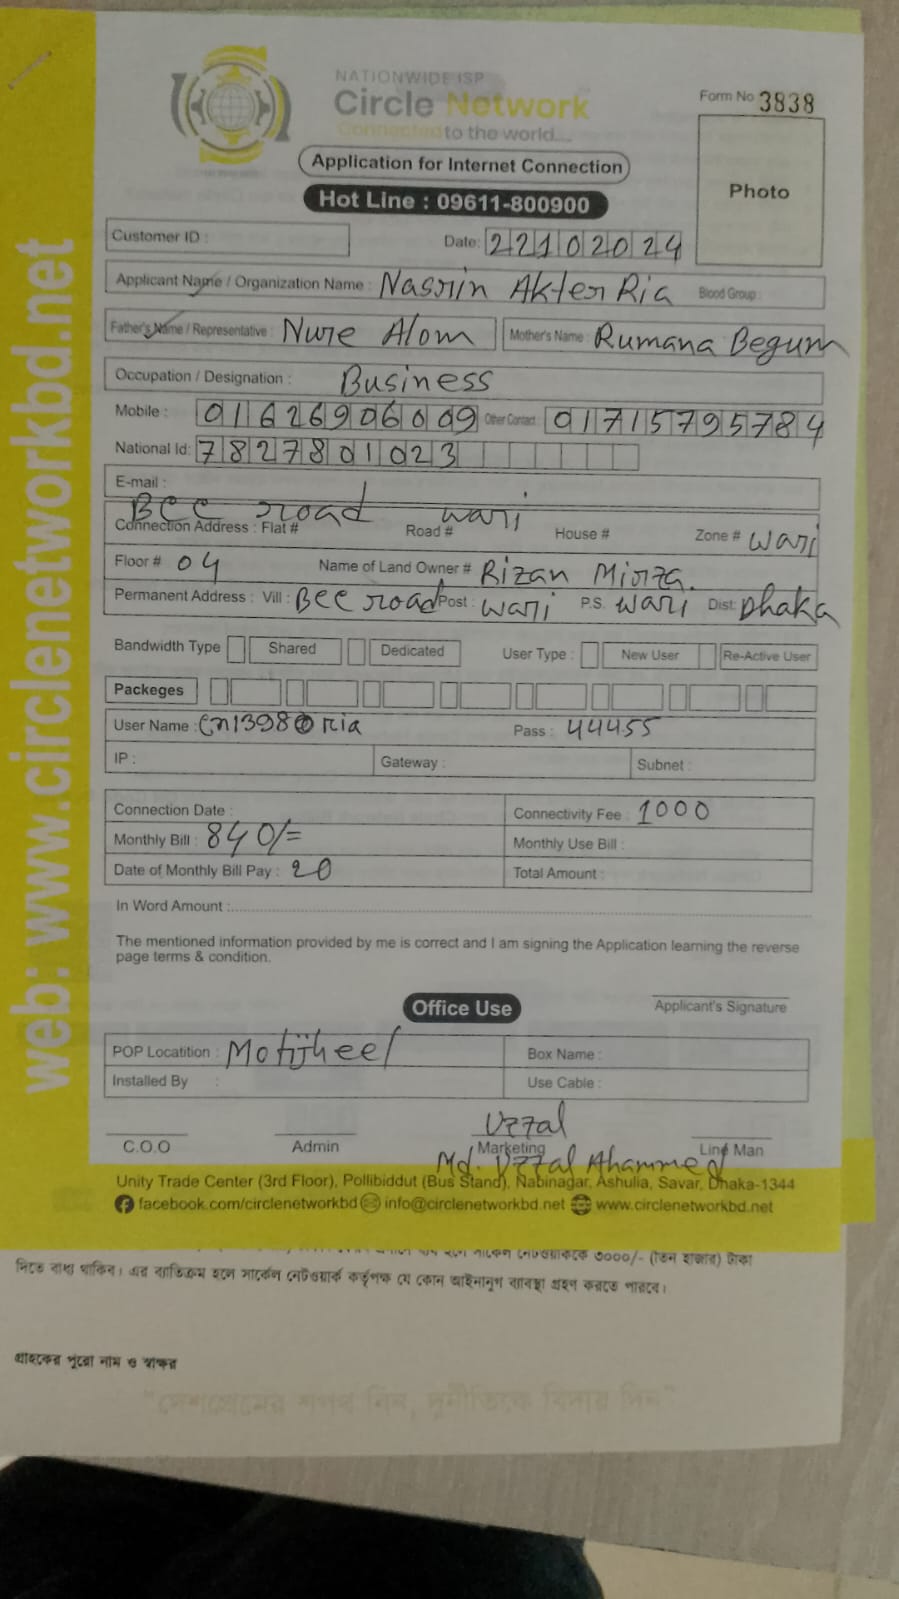 NATIONWIDE ISP
Circle Network
Connected to the world....
Form No 3838
Application for Internet Connection
Hot Line : 09611-800900
Photo
web: www.circlenetworkbd.net
Customer ID :
Date: 22102024
Applicant Name / Organization Name : Nasrin Akter Ria Blood Group :
Father's Name / Representative : Nure Alom Mother's Name : Rumana Begum
Occupation / Designation : Business
Mobile : 01626906009 Other Contact : 01715795784
National Id: 7827801023
E-mail :
BCC road wari
Connection Address : Flat # Road # House # Zone # wari
Floor # 04 Name of Land Owner # Rizan Mirza.
Permanent Address : Vill : BCC road Post : wari P.S. wari Dist: Dhaka
Bandwidth Type Shared Dedicated User Type : New User Re-Active User
Packeges
User Name : cn1398@ria Pass : 44455
IP : Gateway : Subnet :
Connection Date : Connectivity Fee : 1000
Monthly Bill : 840/= Monthly Use Bill :
Date of Monthly Bill Pay : 20 Total Amount :
In Word Amount :
The mentioned information provided by me is correct and I am signing the Application learning the reverse
page terms & condition.
Applicant's Signature
Office Use
POP Locatition : Motijheel Box Name :
Installed By : Use Cable :
Uzzal
C.O.O Admin Marketing Line Man
Md. Uzzal Ahammed
Unity Trade Center (3rd Floor), Pollibiddut (Bus Stand), Nabinagar, Ashulia, Savar, Dhaka-1344
facebook.com/circlenetworkbd info@circlenetworkbd.net www.circlenetworkbd.net
সার্কেল নেটওয়ার্ককে ৩০০০/- (তিন হাজার) টাকা
দিতে বাধ্য থাকিব। এর ব্যতিক্রম হলে সার্কেল নেটওয়ার্ক কর্তৃপক্ষ যে কোন আইনানুগ ব্যাবস্থা গ্রহণ করতে পারবে।
গ্রাহকের পুরো নাম ও স্বাক্ষর
"দেশপ্রেমের শপথ নিন, দুর্নীতিকে বিদায় দিন"